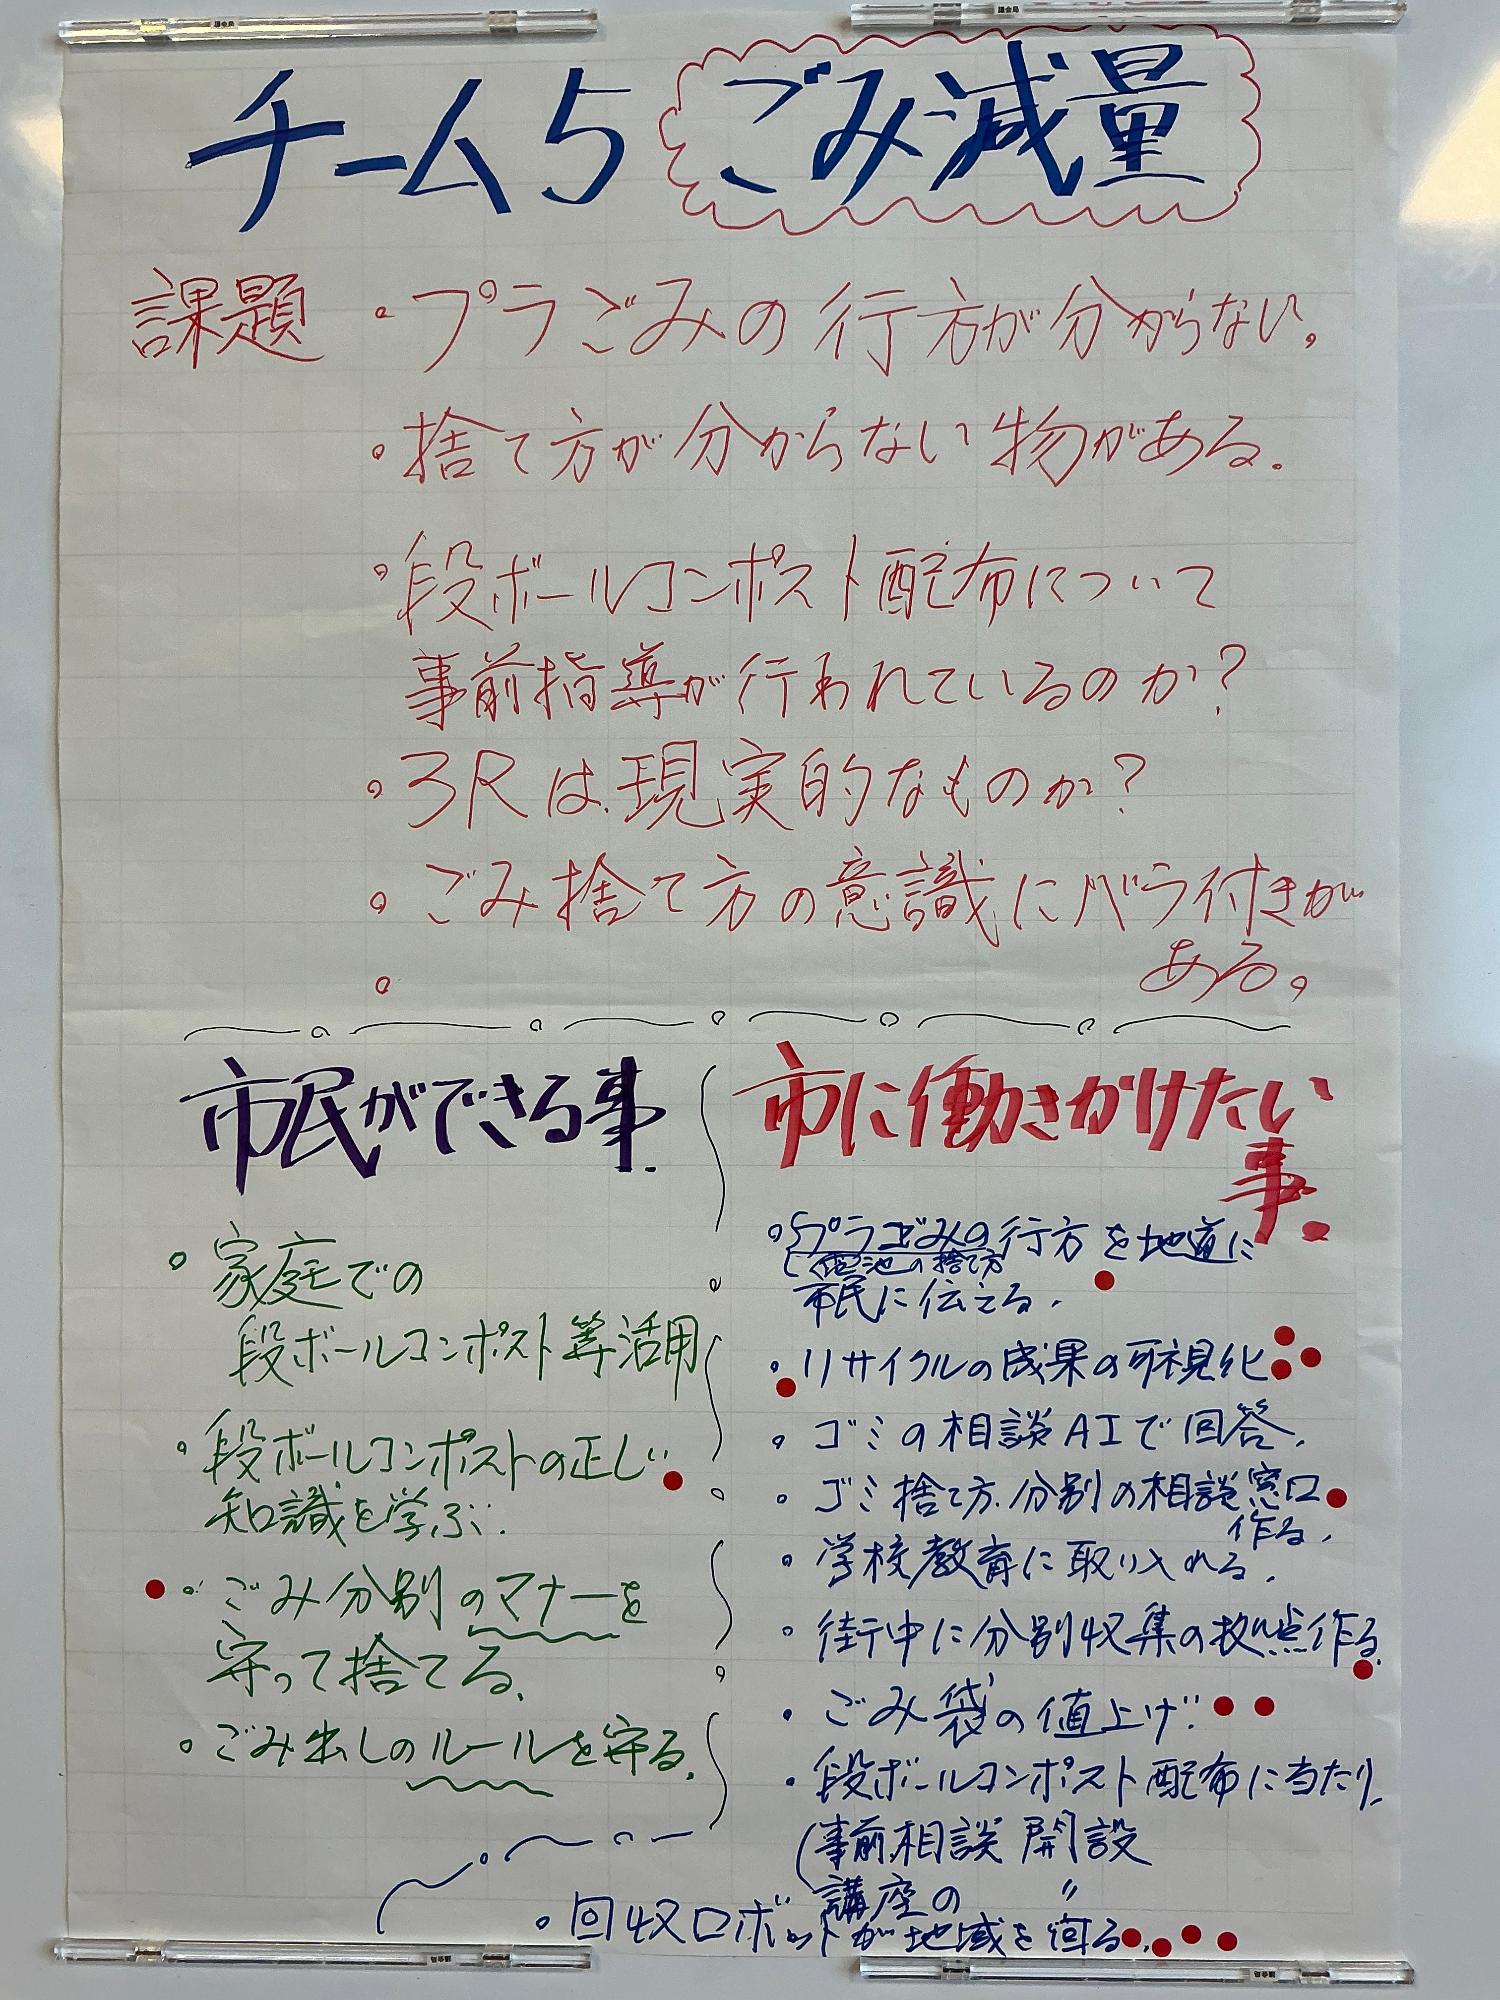 チーム5 ごみ減量
課題 ・プラごみの行方が分からない。
・捨て方が分からない物がある。
・段ボールコンポスト配布について
事前指導が行われているのか?
・3Rは現実的なものか?
・ごみ捨て方の意識にバラ付きが
ある。
・
市民ができる事.
・家庭での
段ボールコンポスト等活用
・段ボールコンポストの正しい
知識を学ぶ.
・ごみ分別のマナーを
守って捨てる.
・ごみ出しのルールを守る.
市に働きかけたい
事.
・プラごみの行方を地道に
電池の捨て方
市民に伝える.
・リサイクルの成果の可視化
・ゴミの相談AIで回答.
・ゴミ捨て方.分別の相談窓口
作る.
・学校教育に取り入れる.
・街中に分別収集の拠点作る.
・ごみ袋の値上げ
・段ボールコンポスト配布に当たり.
(事前相談 開設
講座の 〃
・回収ロボットが地域を回る.